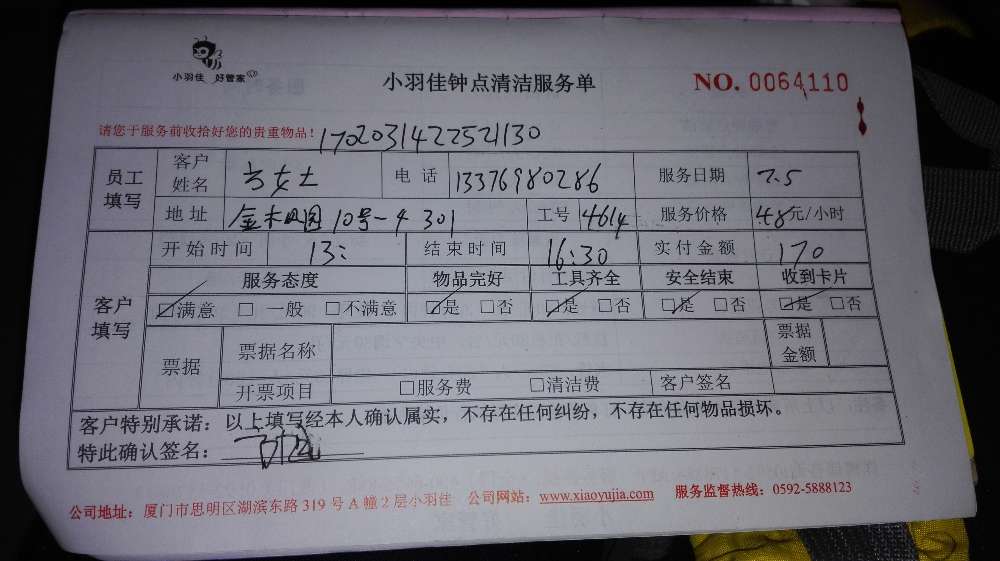 小羽佳 好管家
小羽佳钟点清洁服务单
NO. 0064110
请您于服务前收拾好您的贵重物品！
1702031422521130
员工填写 客户姓名 方女士 电话 13376980286 服务日期 7.5
地址 10号-4 301 工号 4614 服务价格 48元/小时
客户填写 开始时间 13: 结束时间 16:30 实付金额 170
服务态度 物品完好 工具齐全 安全结束 收到卡片
☑满意 □一般 □不满意 ☑是 □否 ☑是 □否 ☑是 □否 ☑是 □否
票据 票据名称 票据金额
开票项目 □服务费 □清洁费 客户签名
客户特别承诺：以上填写经本人确认属实，不存在任何纠纷，不存在任何物品损坏。
特此确认签名：
公司地址：厦门市思明区湖滨东路319号A幢2层小羽佳 公司网站：www.xiaoyujia.com 服务监督热线：0592-5888123